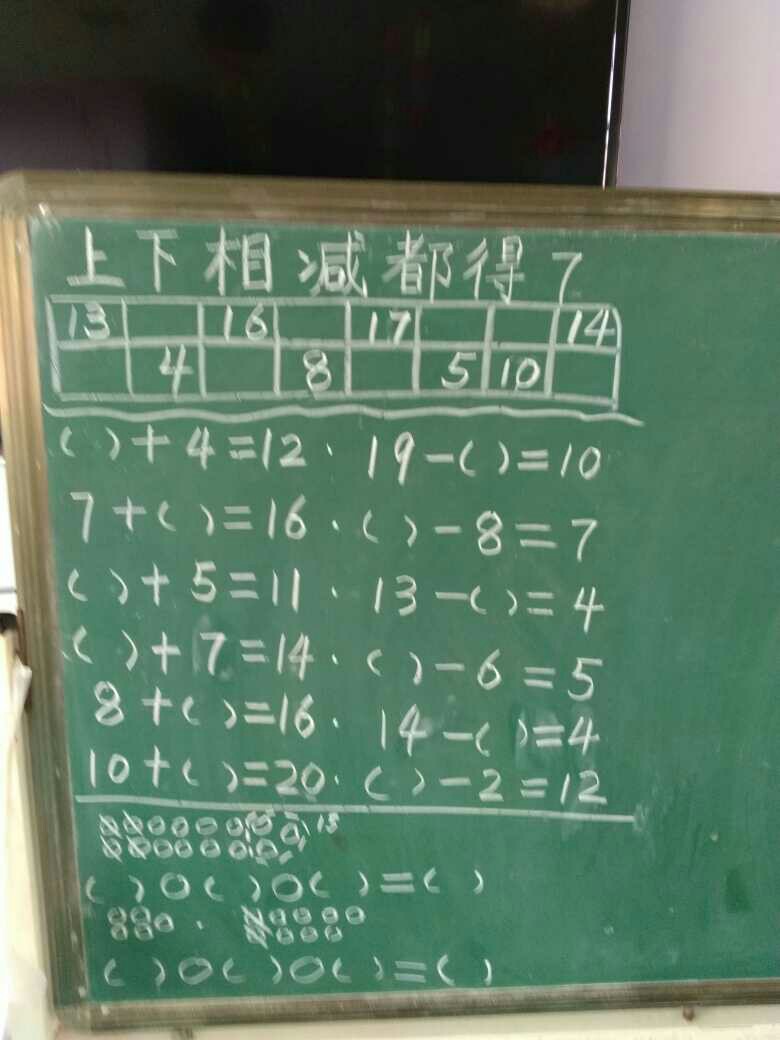 上下相减都得7
13 16 17 14
4 8 5 10
( )+4=12. 19-( )=10
7+( )=16. ( )-8=7
( )+5=11. 13-( )=4
( )+7=14. ( )-6=5
8+( )=16. 14-( )=4
10+( )=20. ( )-2=12
( )○( )○( )=( )
( )○( )○( )=( )